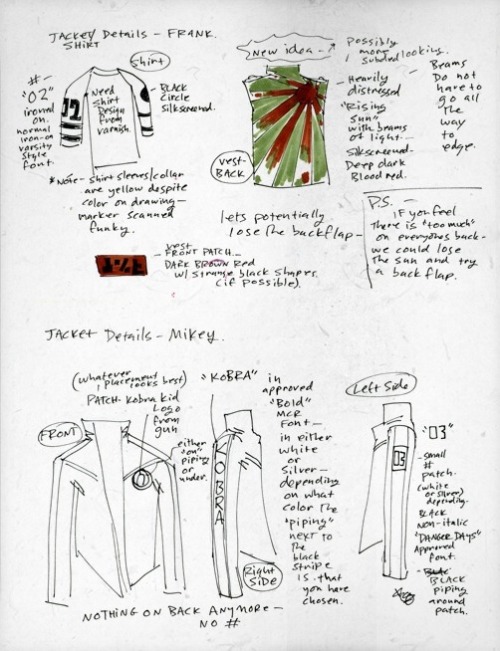 JACKET DETAILS - FRANK.
SHIRT
#-
"02"
ironed
on.
normal
iron-on
varsity
style
font.
Shirt
02
Need
Shirt
Design
From
varnish.
- BLACK
Circle
Silkscreened.
*Note - Shirt sleeves/collar
are yellow despite
color on drawing-
marker scanned
funky.
New idea -
Possibly
more
subdued looking.
- Heavily
distressed
- "Rising
Sun"
with beams
of light -
- Silkscreened-
Deep dark
Blood red.
- Beams
Do not
have to
go all
The
way
to
edge.
vest-
BACK
lets potentially
lose The backflap-
vest
- FRONT PATCH -
DARK BROWN Red
w/ strange black shapes.
(if possible).
P.S. -
IF you feel
There is "too much"
on everyones back-
we could lose
The sun and try
a back flap.
JACKET DETAILS - MIKEY.
(whatever
placement
looks best)
PATCH - Kobra Kid
Logo
From
gun
FRONT
either
"on"
piping
or
under.
"KOBRA"
in
approved
"Bold"
MCR
Font -
in either
white
or
Silver -
depending
on what
color The
"piping"
next to
The
black
stripe
IS that
you have
chosen.
KOBRA
Right
SIDE
Left Side
03
"03"
- small
#
patch.
(white
or silver)
depending.
- BLACK
NON-italic
"DANGER DAYS"
Approved
font.
- BLACK
piping
around
patch.
NOTHING ON BACK ANYMORE -
NO #